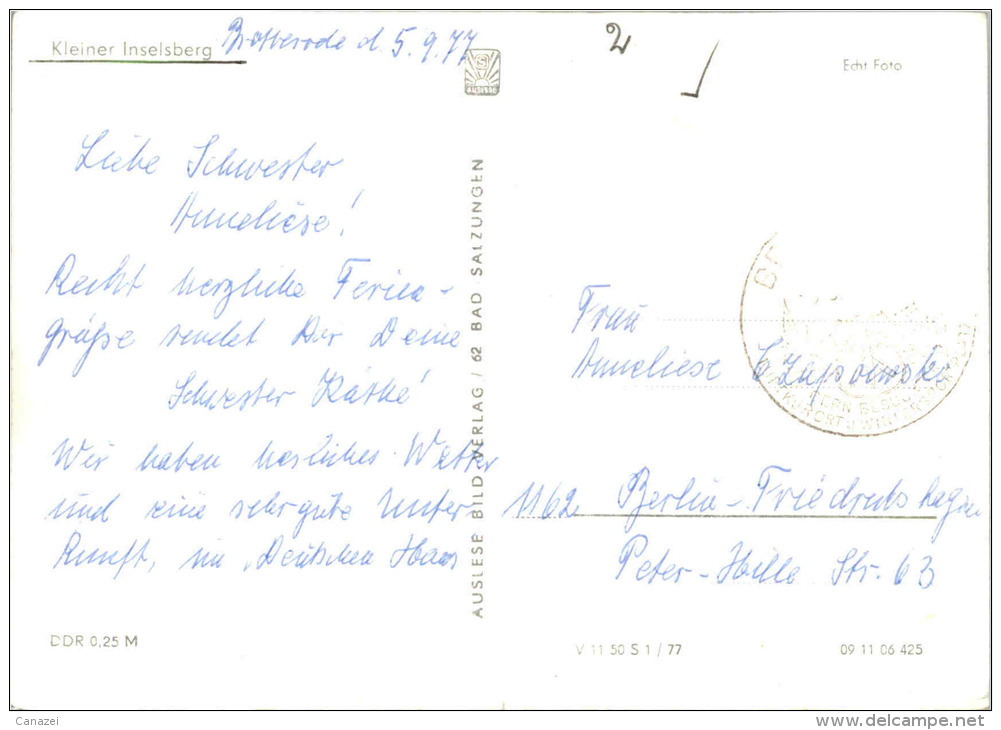 Kleiner Inselsberg
Brotterode d. 5.9.77
2
Echt Foto
AUSLESE
Liebe Schwester
Anneliese!
Recht herzliche Ferien-
grüße sendet Dir Deine
Schwester Käthe!
Wir haben herrliches Wetter
und eine sehr gute Unter-
kunft, im "Deutschen Haus
AUSLESE BILD-VERLAG / 62 BAD SALZUNGEN
Frau
Anneliese Czaposwski
1162 Berlin-Friedrichshagen
Peter-Hille Str. 63
DDR 0,25 M
V 11 50 S 1 / 77
09 11 06 425
Canazei
www.delcampe.net